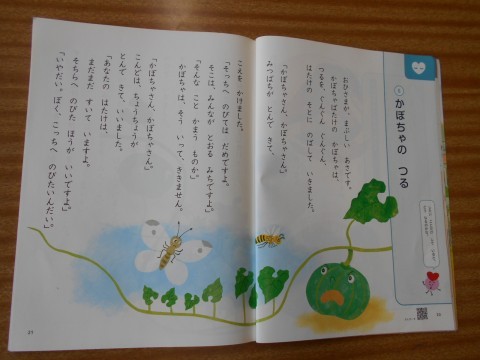 かぼちゃの つる
おひさまが、まぶしい あさです。
かぼちゃばたけの かぼちゃは、
つるを、ぐんぐん ぐんぐん、
はたけの そとに のばして いきました。
「かぼちゃさん、かぼちゃさん。」
みつばちが とんで きて、
こえを かけました。
「そっちへ のびては だめですよ。
そこは、みんなが とおる みちですよ。」
「そんな こと かまう ものか。」
かぼちゃは、そう いって、ききません。
「かぼちゃさん、かぼちゃさん。」
こんどは、ちょうちょうが
とんで きて、いいました。
「あなたの はたけは、
まだまだ すいて いますよ。
そちらへ のびた ほうが いいですよ。」
「いやだい。ぼく、こっちへ のびたいんだい。」